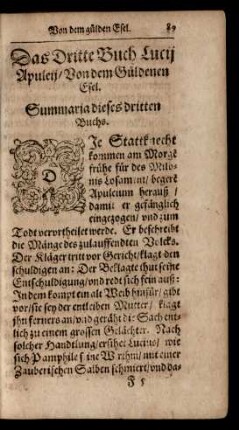 Von dem gülden Esel. 89
Das Dritte Buch Lucij
Apuleij / Von dem Güldenen
Esel.
Summaria dieses dritten
Buchs.
DIe Stattknecht
kommen am Morgē
frühe für des Milo-
nis Losament / begert
Apuleium herauß /
damit er gefänglich
eingezogen / vnd zum
Todt vervrtheilet werde. Er beschreibt
die Mänge des zulauffendten Volcks.
Der Kläger tritt vor Gericht / klagt den
schuldigen an: Der Beklagte thut seine
Entschuldigung / vnd redt sich fein auß:
In dem kompt ein alt Weib hinfür / gibt
vor / sie sey der entleibten Mutter / klagt
jhn ferners an / vnd geräht die Sach ent-
lich zu einem grossen Gelächter. Nach
solcher Handlung / ersihet Lucius / wie
sich Pamphile seine Wirthin / mit einer
Zauberischen Salben schmiert / vnd da-
F 5